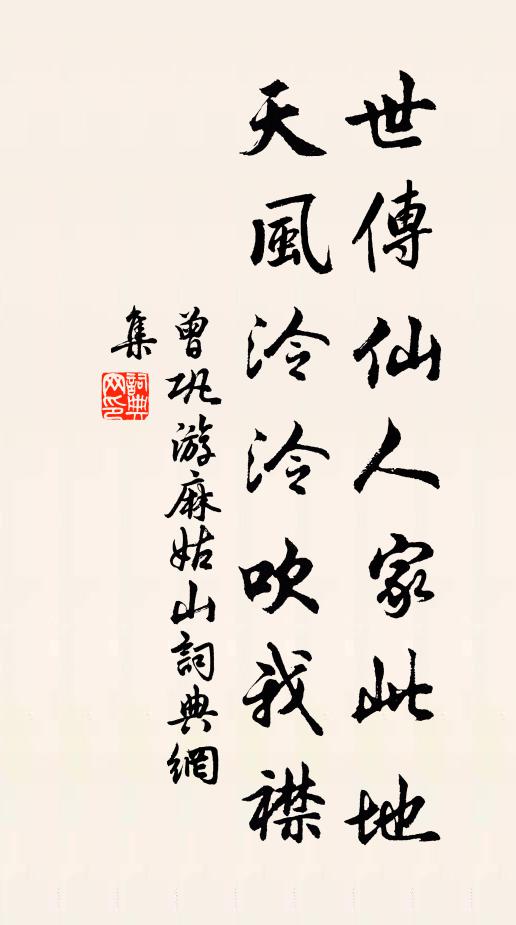 世傳仙人家此地
天風泠泠吹我襟
曾巩游麻姑山詞典網
集
詞典
网印